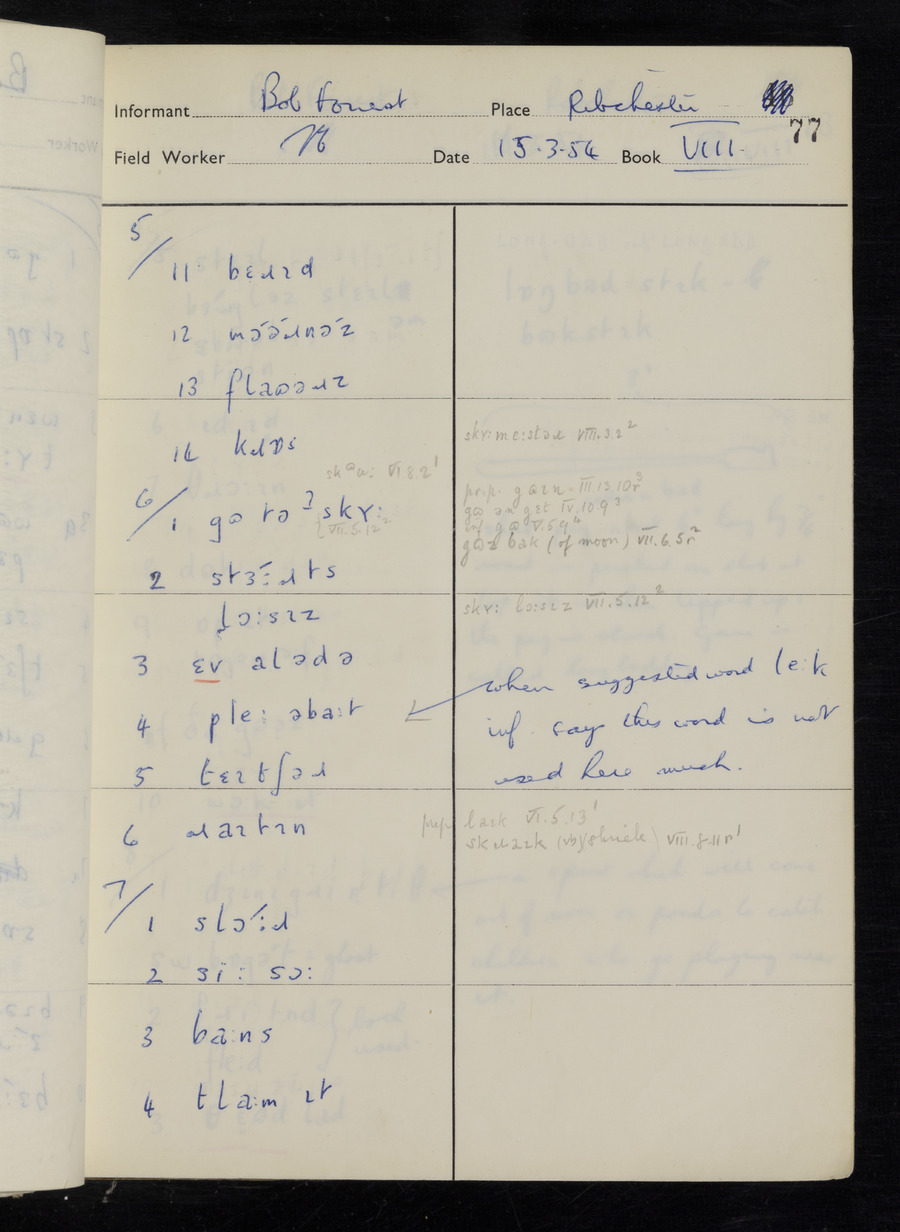 Informant Bob Forrest Place Ribchester
77
Field Worker Date 15·3·54 Book VIII
5/
11 bɛɹɪd
12
13 flaʊəɹz
14 kɹɒs
skuː VI.8.2¹
skʏ:mɛ:stəɹ VIII.3.2²
6/
1 gʊ tə ʔskʏ:
VII.5.12²
p.r.p. gʊɪn III.13.10r³
gʊ ən gɛt IV.10.9³
inf gʊ V.5.9⁴
gʊz bak (of moon) VII.6.5r²
2 stɜ́:ɹts
lɔ:sɪz
skʏ: lɔ:sɪz VII.5.12²
3 ɛv alədə
4 ple: əba:t
when suggested word le:k
inf. says this word is not
used here much.
5 tɛɪtʃəɹ
6 ɹaɪtɪn
laɪk VI.5.13¹
skɹaɪk (vb) shriek VIII.8.11r¹
7/
1 slɔ́:ɹ
2 si: sɔ:
3 ba:ns
4 tla:m ɪt